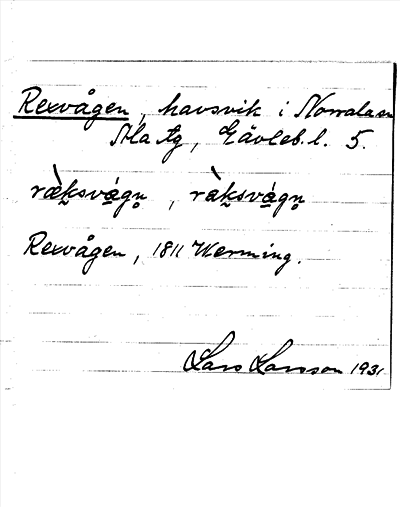 Rexvågen, havsvik i Norrala sn
Ala tg, Gävleb. l. 5.
ræ̀ksvágn̥, ràksvágn̥
Rexvågen, 1811 Werming.
Lars Larsson 1931